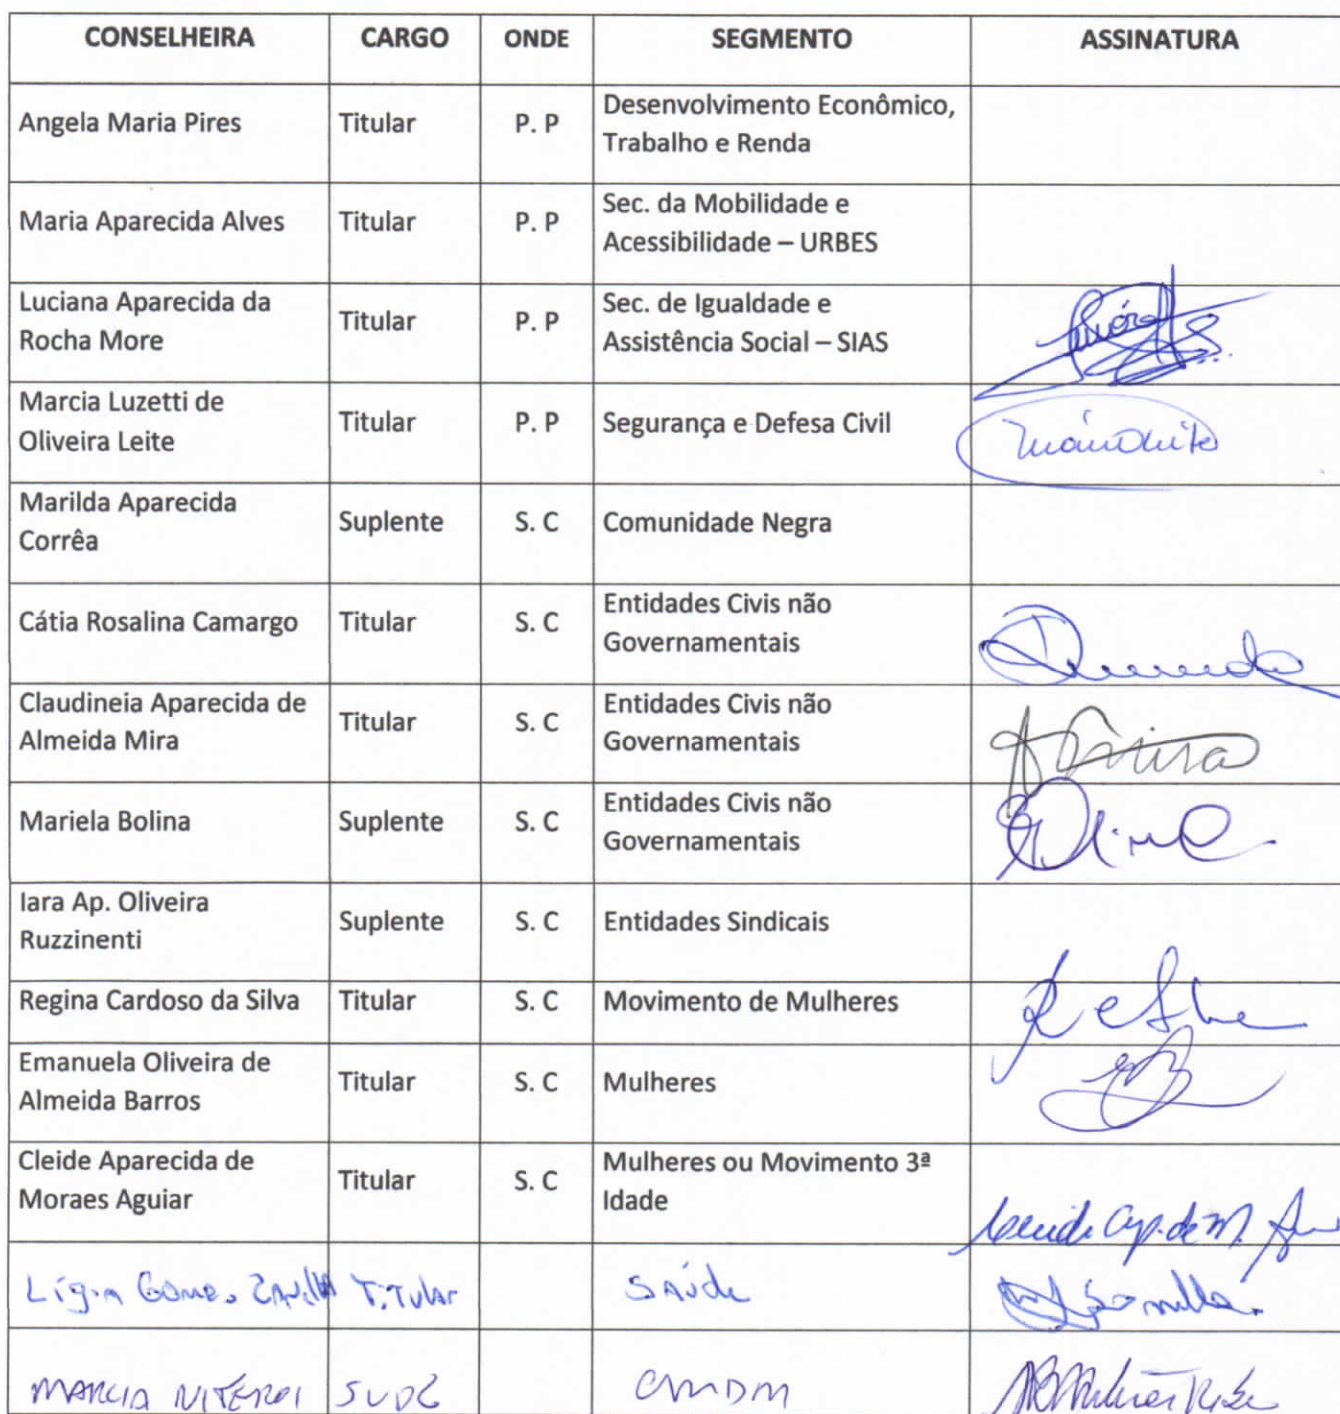 CONSELHEIRA CARGO ONDE SEGMENTO ASSINATURA
Angela Maria Pires Titular P. P Desenvolvimento Econômico,
Trabalho e Renda
Maria Aparecida Alves Titular P. P Sec. da Mobilidade e
Acessibilidade – URBES
Luciana Aparecida da
Rocha More Titular P. P Sec. de Igualdade e
Assistência Social – SIAS
Marcia Luzetti de
Oliveira Leite Titular P. P Segurança e Defesa Civil
Marilda Aparecida
Corrêa Suplente S. C Comunidade Negra
Cátia Rosalina Camargo Titular S. C Entidades Civis não
Governamentais
Claudineia Aparecida de
Almeida Mira Titular S. C Entidades Civis não
Governamentais
Mariela Bolina Suplente S. C Entidades Civis não
Governamentais
Iara Ap. Oliveira
Ruzzinenti Suplente S. C Entidades Sindicais
Regina Cardoso da Silva Titular S. C Movimento de Mulheres
Emanuela Oliveira de
Almeida Barros Titular S. C Mulheres
Cleide Aparecida de
Moraes Aguiar Titular S. C Mulheres ou Movimento 3ª
Idade
Lígia Gomes Titular Saúde
MARCIA NITEROI CMDM